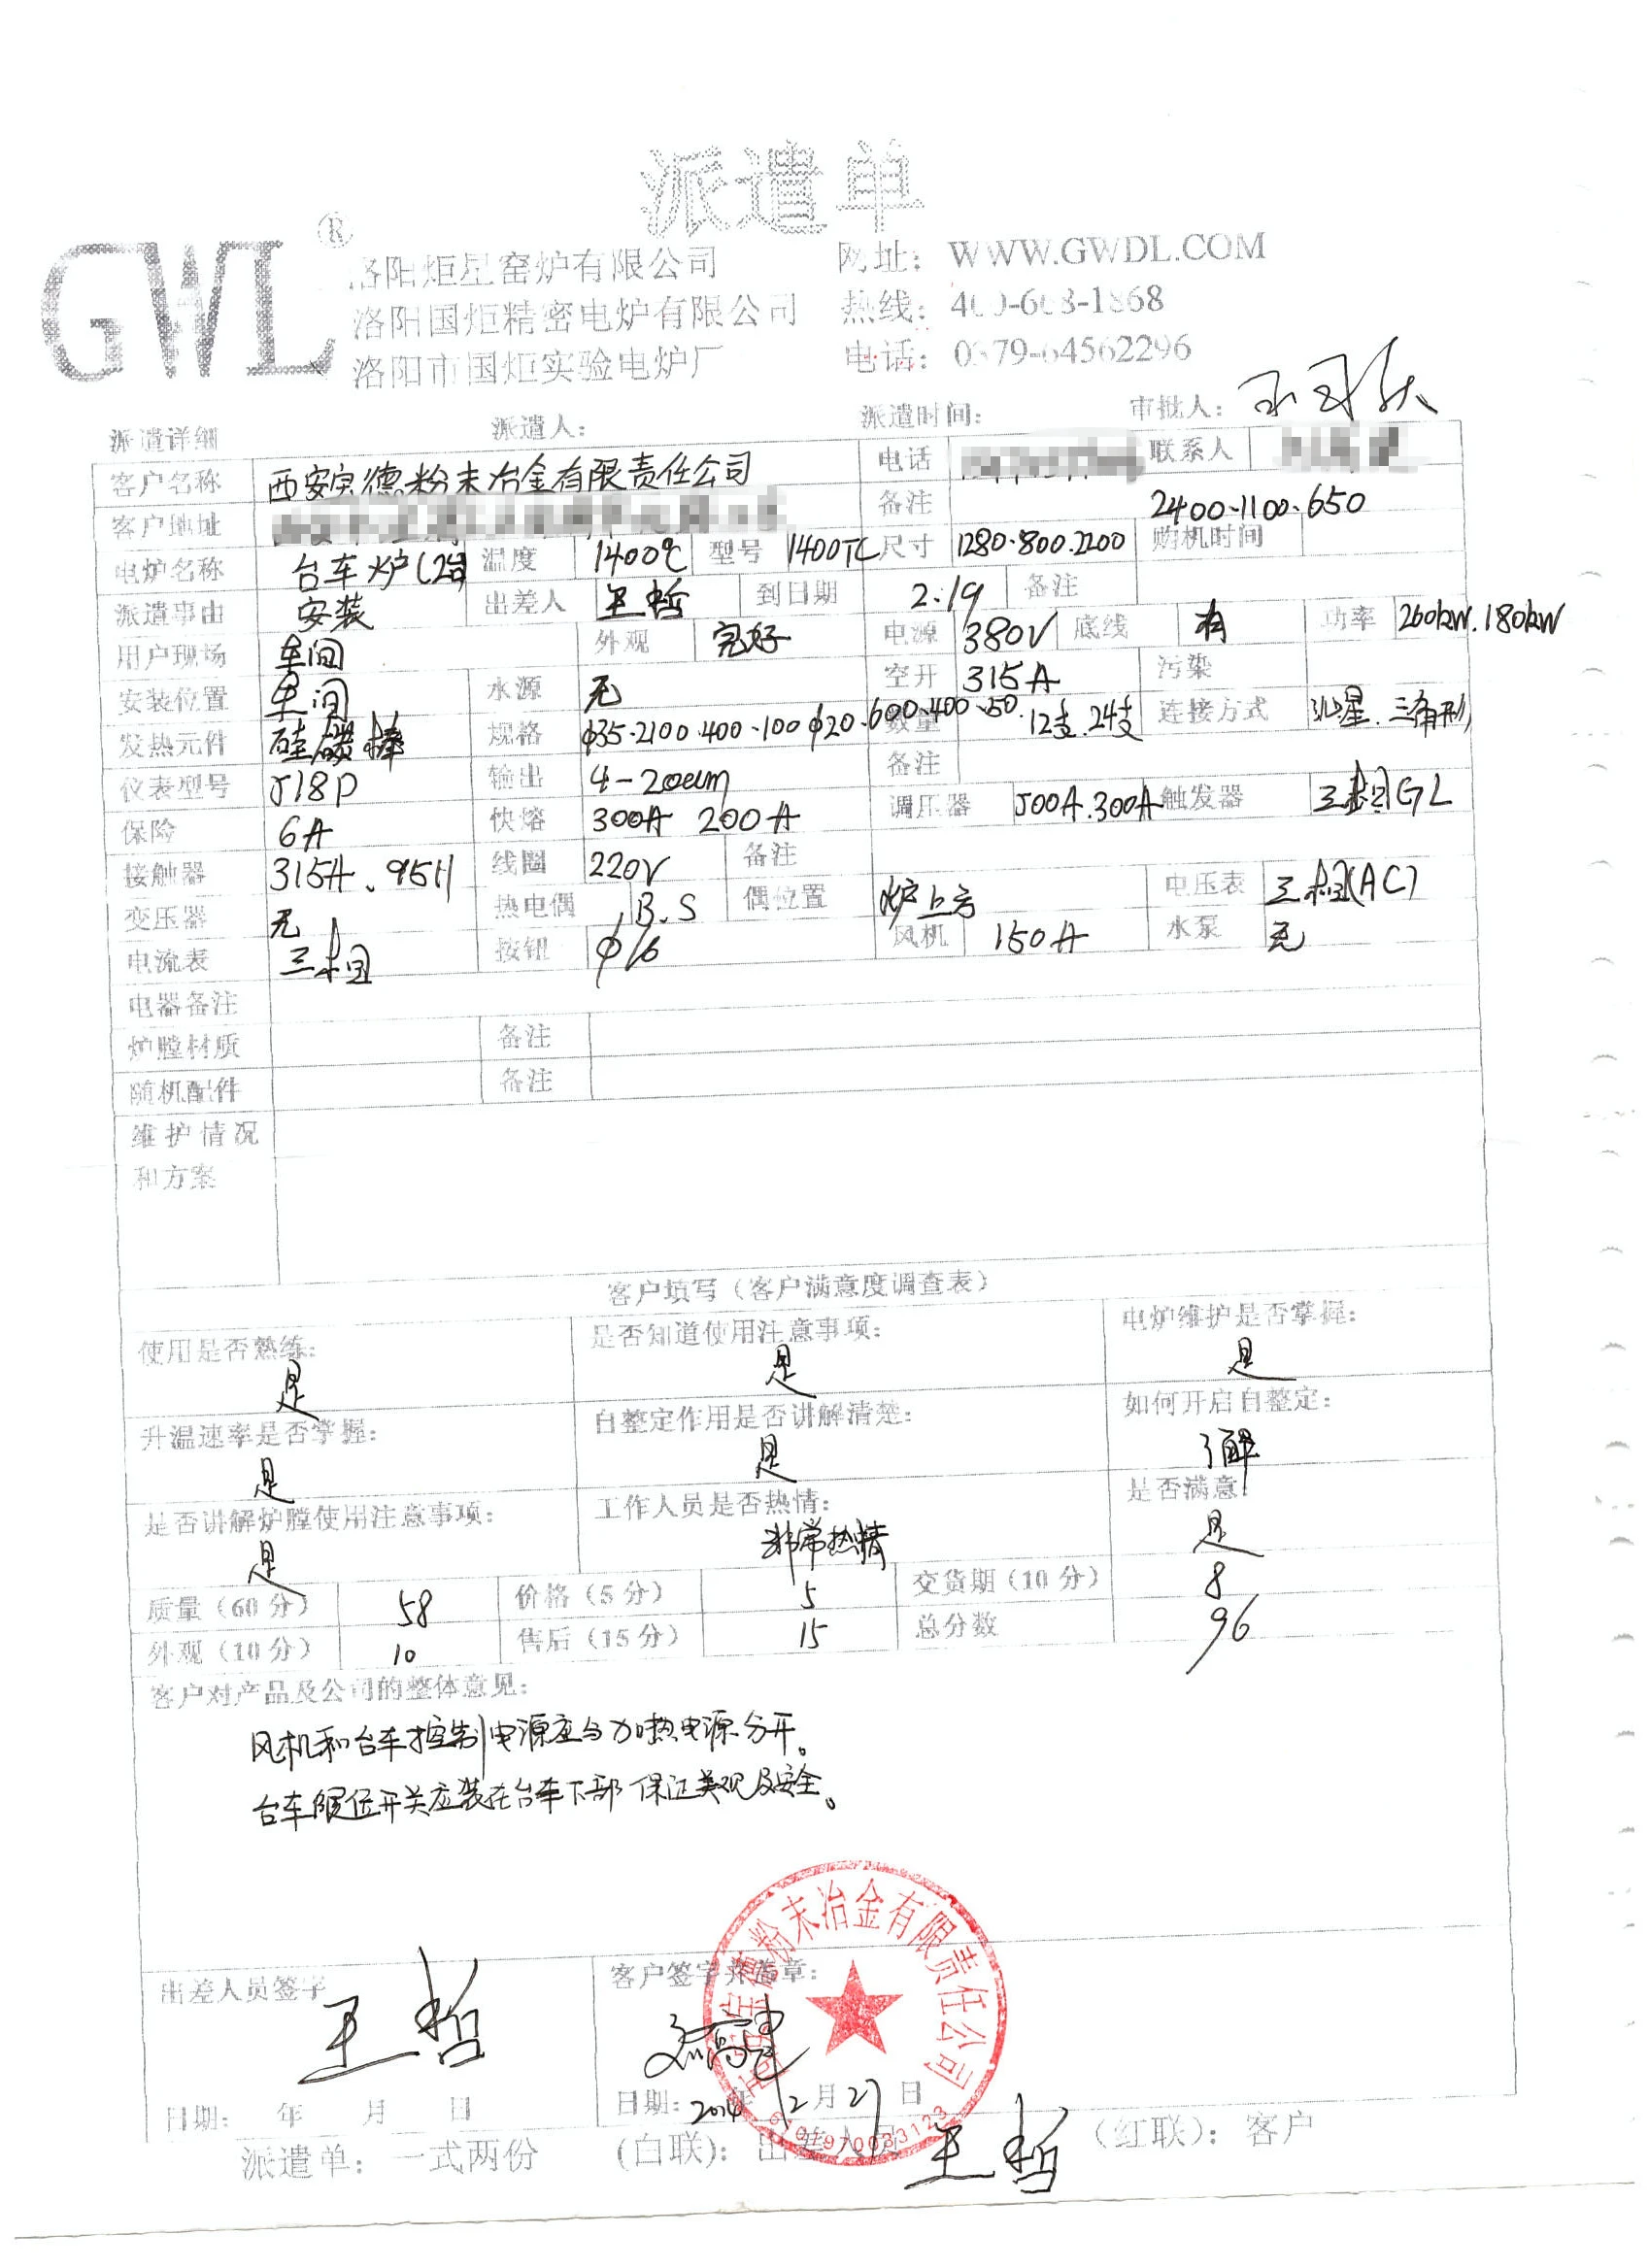 派遣单
GWL®
洛阳炬星窑炉有限公司 网址：WWW.GWDL.COM
洛阳国炬精密电炉有限公司 热线：400-668-1868
洛阳市国炬实验电炉厂 电话：0379-64562296
派遣详细 派遣人： 派遣时间： 审批人：
客户名称 西安宝德粉末冶金有限责任公司 电话 联系人
客户地址 备注 2400·1100·650
电炉名称 台车炉(2台) 温度 1400℃ 型号 1400TC 尺寸 1280·800·2200 购机时间
派遣事由 安装 出差人 王哲 到日期 2.19 备注
用户现场 车间 外观 完好 电源 380V 底线 有 功率 260kW.180kW
安装位置 车间 水源 无 空开 315A 污染
发热元件 硅碳棒 规格 φ35·2100·400·100 φ20·600·400·50 数量 12支.24支 连接方式 三角形
仪表型号 J18P 输出 4-20 备注
保险 6A 快熔 300A 200A 调压器 500A.300A 触发器 三相GL
接触器 315A、95A 线圈 220V 备注
变压器 无 热电偶 B.S 偶位置 炉上方 电压表 三相(AC)
电流表 三相 按钮 φ16 风机 150A 水泵 无
电器备注
炉膛材质 备注
随机配件 备注
维护情况
和方案
客户填写（客户满意度调查表）
使用是否熟练： 是 是否知道使用注意事项： 是 电炉维护是否掌握： 是
升温速率是否掌握： 是 自整定作用是否讲解清楚： 是 如何开启自整定： 了解
是否讲解炉膛使用注意事项： 是 工作人员是否热情： 非常热情 是否满意： 是
质量（60分） 58 价格（5分） 5 交货期（10分） 8
外观（10分） 10 售后（15分） 15 总分数 96
客户对产品及公司的整体意见：
风机和台车控制电源应与加热电源分开。
台车限位开关应装在台车下部 保证美观及安全。
出差人员签字 王哲 客户签字并盖章：
西安宝德粉末冶金有限责任公司
6101970033123
日期： 年 月 日 日期：2014年2月27日
派遣单：一式两份 （白联）：出差人员 王哲 （红联）：客户